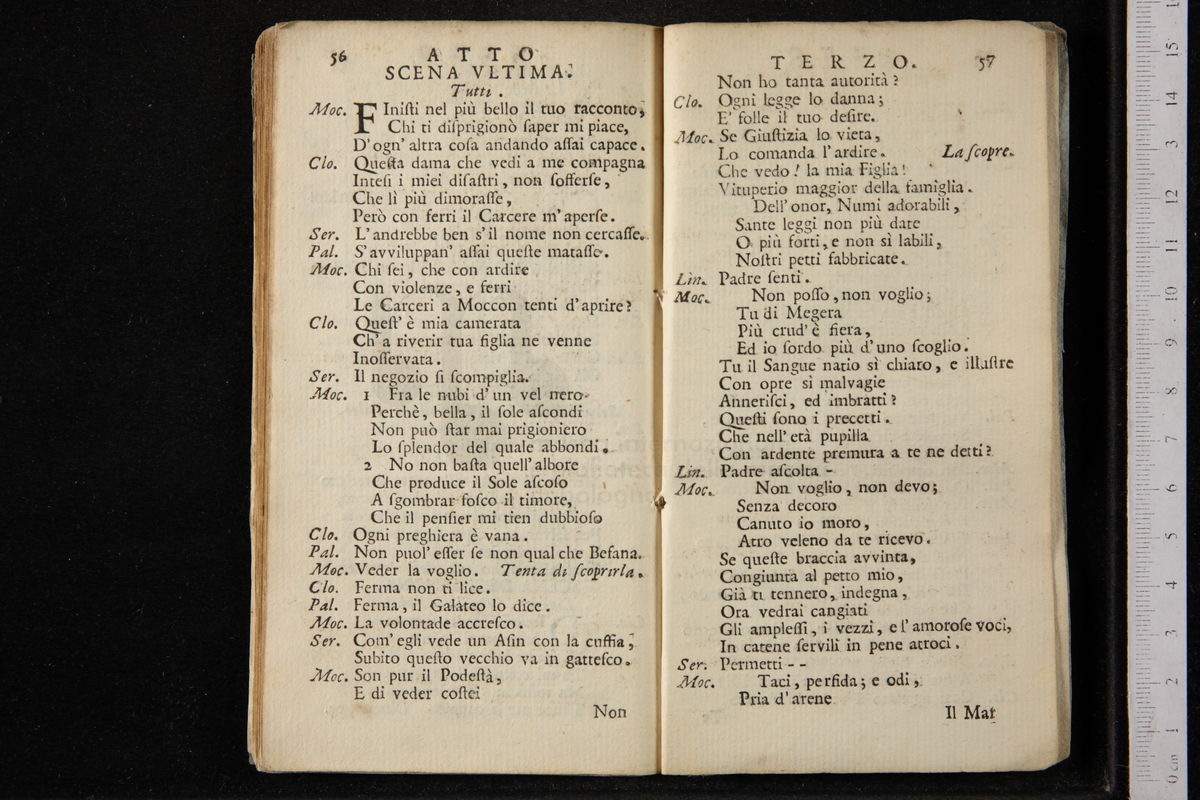 56 ATTO
SCENA VLTIMA.
Tutti .
Moc. FIniſti nel più bello il tuo racconto,
Chi ti diſprigionò ſaper mi piace,
D'ogn'altra coſa andando aſſai capace.
Clo. Queſta dama che vedi a me compagna
Inteſi i miei diſaſtri, non ſofferſe,
Che lì più dimoraſſe,
Però con ferri il Carcere m'aperſe.
Ser. L'andrebbe ben s'il nome non cercaſſe.
Pal. S'avviluppan' aſſai queſte mataſſe.
Moc. Chi ſei, che con ardire
Con violenze, e ferri
Le Carceri a Moccon tenti d'aprire?
Clo. Queſt' è mia camerata
Ch'a riverir tua figlia ne venne
Inoſſervata.
Ser. Il negozio ſi ſcompiglia.
Moc. 1 Fra le nubi d'un vel nero
Perchè, bella, il ſole aſcondi
Non può ſtar mai prigioniero
Lo ſplendor del quale abbondi.
2 No non baſta quell'albore
Che produce il Sole aſcoſo
A ſgombrar foſco il timore,
Che il penſier mi tien dubbioſo
Clo. Ogni preghiera è vana.
Pal. Non puol'eſſer ſe non qual che Befana.
Moc. Veder la voglio. Tenta di ſcoprirla.
Clo. Ferma non ti lice.
Pal. Ferma, il Galateo lo dice.
Moc. La volontade accreſco.
Ser. Com'egli vede un Aſin con la cuffia,
Subito queſto vecchio va in gatteſco.
Moc. Son pur il Podeſtà,
E di veder coſtei
Non
TERZO. 57
Non ho tanta autorità?
Clo. Ogni legge lo danna;
E' folle il tuo deſire.
Moc. Se Giuſtizia lo vieta,
Lo comanda l'ardire. La ſcopre.
Che vedo! la mia Figlia!
Vituperio maggior della famiglia.
Dell'onor, Numi adorabili,
Sante leggi non più date
O più forti, e non sì labili,
Noſtri petti fabbricate.
Lin. Padre ſenti.
Moc. Non poſſo, non voglio;
Tu di Megera
Più crud'è fiera,
Ed io ſordo più d'uno ſcoglio.
Tu il Sangue natio sì chiaro, e illuſtre
Con opre sì malvagie
Anneriſci, ed imbratti?
Queſti ſono i precetti.
Che nell'età pupilla
Con ardente premura a te ne detti?
Lin. Padre aſcolta -
Moc. Non voglio, non devo;
Senza decoro
Canuto io moro,
Atro veleno da te ricevo.
Se queſte braccia avvinta,
Congiunta al petto mio,
Già ti tennero, indegna,
Ora vedrai cangiati
Gli ampleſſi, i vezzi, e l'amoroſe voci,
In catene ſervili in pene atroci.
Ser. Permetti - -
Moc. Taci, perfida; e odi,
Pria d'arene
Il Mar